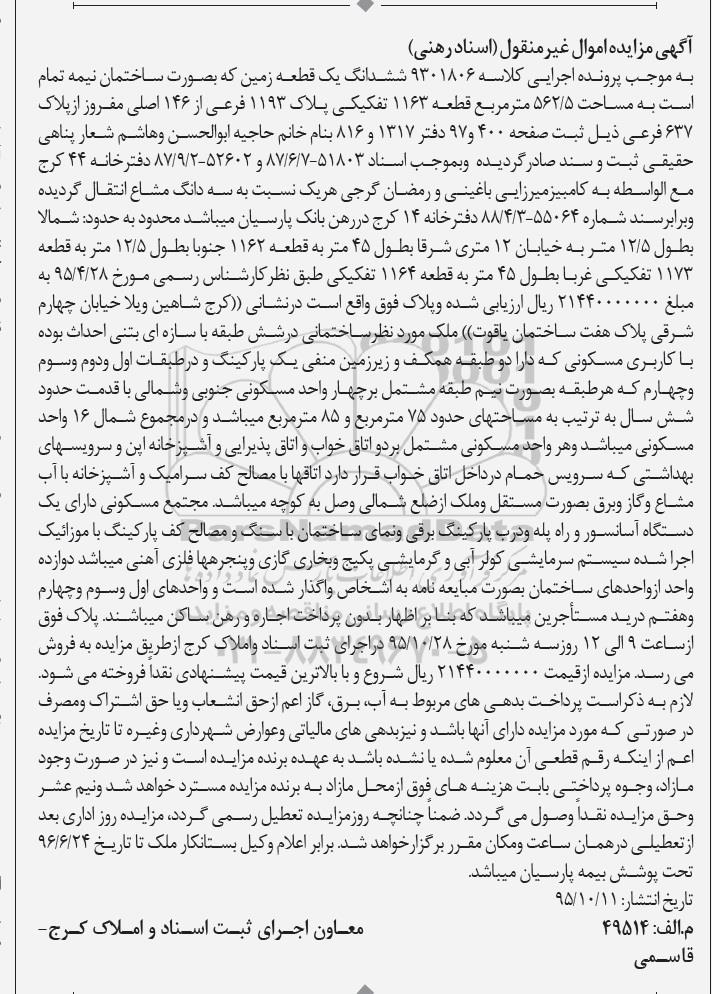 آگهی مزایده اموال غیر منقول (اسناد رهنی)
به موجب پرونده اجرایی کلاسه ۹۳۰۱۸۰۶ ششدانگ یک قطعه زمین که بصورت ساختمان نیمه تمام
است به مساحت ۵۶۲/۵ مترمربع قطعه ۱۱۶۳ تفکیکی پلاک ۱۱۹۳ فرعی از ۱۴۶ اصلی مفروز ازپلاک
۶۳۷ فرعی ذیل ثبت صفحه ۴۰۰ و۹۷ دفتر ۱۳۱۷ و ۸۱۶ بنام خانم حاجیه ابوالحسن وهاشم شعار پناهی
حقیقی ثبت و سند صادرگردیده وبموجب اسناد ۵۱۸۰۳-۸۷/۶/۷ و ۵۲۶۰۲-۸۷/۹/۲ دفترخانه ۴۴ کرج
مع الواسطه به کامبیزمیرزایی باغینی و رمضان گرجی هریک نسبت به سه دانگ مشاع انتقال گردیده
وبرابرسند شماره ۵۵۰۶۴-۸۸/۴/۳ دفترخانه ۱۴ کرج دررهن بانک پارسیان میباشد محدود به حدود: شمالا
بطول ۱۲/۵ متر به خیابان ۱۲ متری شرقا بطول ۴۵ متر به قطعه ۱۱۶۲ جنوبا بطول ۱۲/۵ متر به قطعه
۱۱۷۳ تفکیکی غربا بطول ۴۵ متر به قطعه ۱۱۶۴ تفکیکی طبق نظرکارشناس رسمی مورخ ۹۵/۴/۲۸ به
مبلغ ۲۱۴۴۰۰۰۰۰۰۰ ریال ارزیابی شده وپلاک فوق واقع است درنشانی ((کرج شاهین ویلا خیابان چهارم
شرقی پلاک هفت ساختمان یاقوت)) ملک مورد نظرساختمانی درشش طبقه با سازه ای بتنی احداث بوده
با کاربری مسکونی که دارا دو طبقه همکف و زیرزمین منفی یک پارکینگ و درطبقات اول ودوم وسوم
وچهارم که هرطبقه بصورت نیم طبقه مشتمل برچهار واحد مسکونی جنوبی وشمالی با قدمت حدود
شش سال به ترتیب به مساحتهای حدود ۷۵ مترمربع و ۸۵ مترمربع میباشد و درمجموع شمال ۱۶ واحد
مسکونی میباشد وهر واحد مسکونی مشتمل بردو اتاق خواب و اتاق پذیرایی و آشپزخانه اپن و سرویسهای
بهداشتی که سرویس حمام درداخل اتاق خواب قرار دارد اتاقها با مصالح کف سرامیک و آشپزخانه با آب
مشاع وگاز وبرق بصورت مستقل وملک ازضلع شمالی وصل به کوچه میباشد. مجتمع مسکونی دارای یک
دستگاه آسانسور و راه پله ودرب پارکینگ برقی ونمای ساختمان با سنگ و مصالح کف پارکینگ با موزائیک
اجرا شده سیستم سرمایشی کولر آبی و گرمایشی پکیج وبخاری گازی وپنجرهها فلزی آهنی میباشد دوازده
واحد ازواحدهای ساختمان بصورت مبایعه نامه به اشخاص واگذار شده است و واحدهای اول وسوم وچهارم
وهفتم درید مستأجرین میباشد که بنا بر اظهار بدون پرداخت اجاره و رهن ساکن میباشند. پلاک فوق
ازساعت ۹ الی ۱۲ روزسه شنبه مورخ ۹۵/۱۰/۲۸ دراجرای ثبت اسناد واملاک کرج ازطریق مزایده به فروش
می رسد. مزایده ازقیمت ۲۱۴۴۰۰۰۰۰۰۰ ریال شروع و با بالاترین قیمت پیشنهادی نقداً فروخته می شود.
لازم به ذکراست پرداخت بدهی های مربوط به آب، برق، گاز اعم ازحق انشعاب ویا حق اشتراک ومصرف
در صورتی که مورد مزایده دارای آنها باشد و نیزبدهی های مالیاتی وعوارض شهرداری وغیره تا تاریخ مزایده
اعم از اینکه رقم قطعی آن معلوم شده یا نشده باشد به عهده برنده مزایده است و نیز در صورت وجود
مازاد، وجوه پرداختی بابت هزینه های فوق ازمحل مازاد به برنده مزایده مسترد خواهد شد ونیم عشر
وحق مزایده نقداً وصول می گردد. ضمناً چنانچه روزمزایده تعطیل رسمی گردد، مزایده روز اداری بعد
ازتعطیلی درهمان ساعت ومکان مقرر برگزارخواهد شد. برابر اعلام وکیل بستانکار ملک تا تاریخ ۹۶/۶/۲۴
تحت پوشش بیمه پارسیان میباشد.
تاریخ انتشار: ۹۵/۱۰/۱۱
م.الف: ۴۹۵۱۴ معاون اجرای ثبت اسناد و املاک کرج-
قاسمی